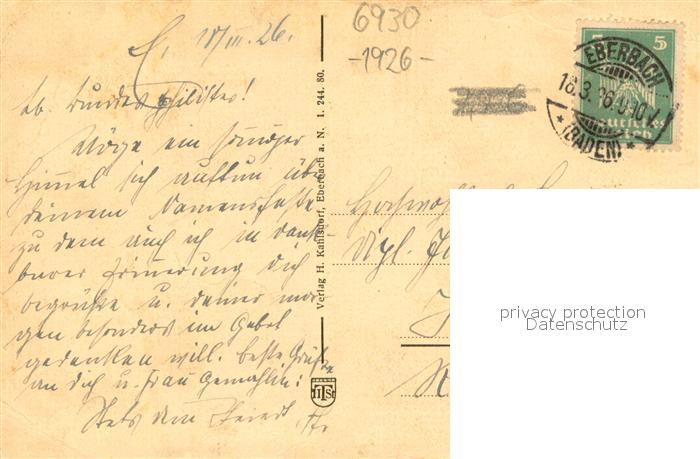 6930
-1926-
E, 17/III. 26.
lb. Bundesphilister!
Möge ein sonniger
Himmel sich auftun über
deinem Damenfeste
zu dem auch ich in dank-
barer Erinnerung dich
begrüße u. deiner mor-
gen besonders im Gebet
gedenken will. beste Grüße
an dich u. Frau Gemahlin:
Stets dein
Verlag H. Kahlsdorf, Eberbach a. N. 1. 244. 80.
5 5
EBERBACH
18.3.26.
(BADEN)
Deutsches
Reich
Dipl.
privacy protection
Datenschutz